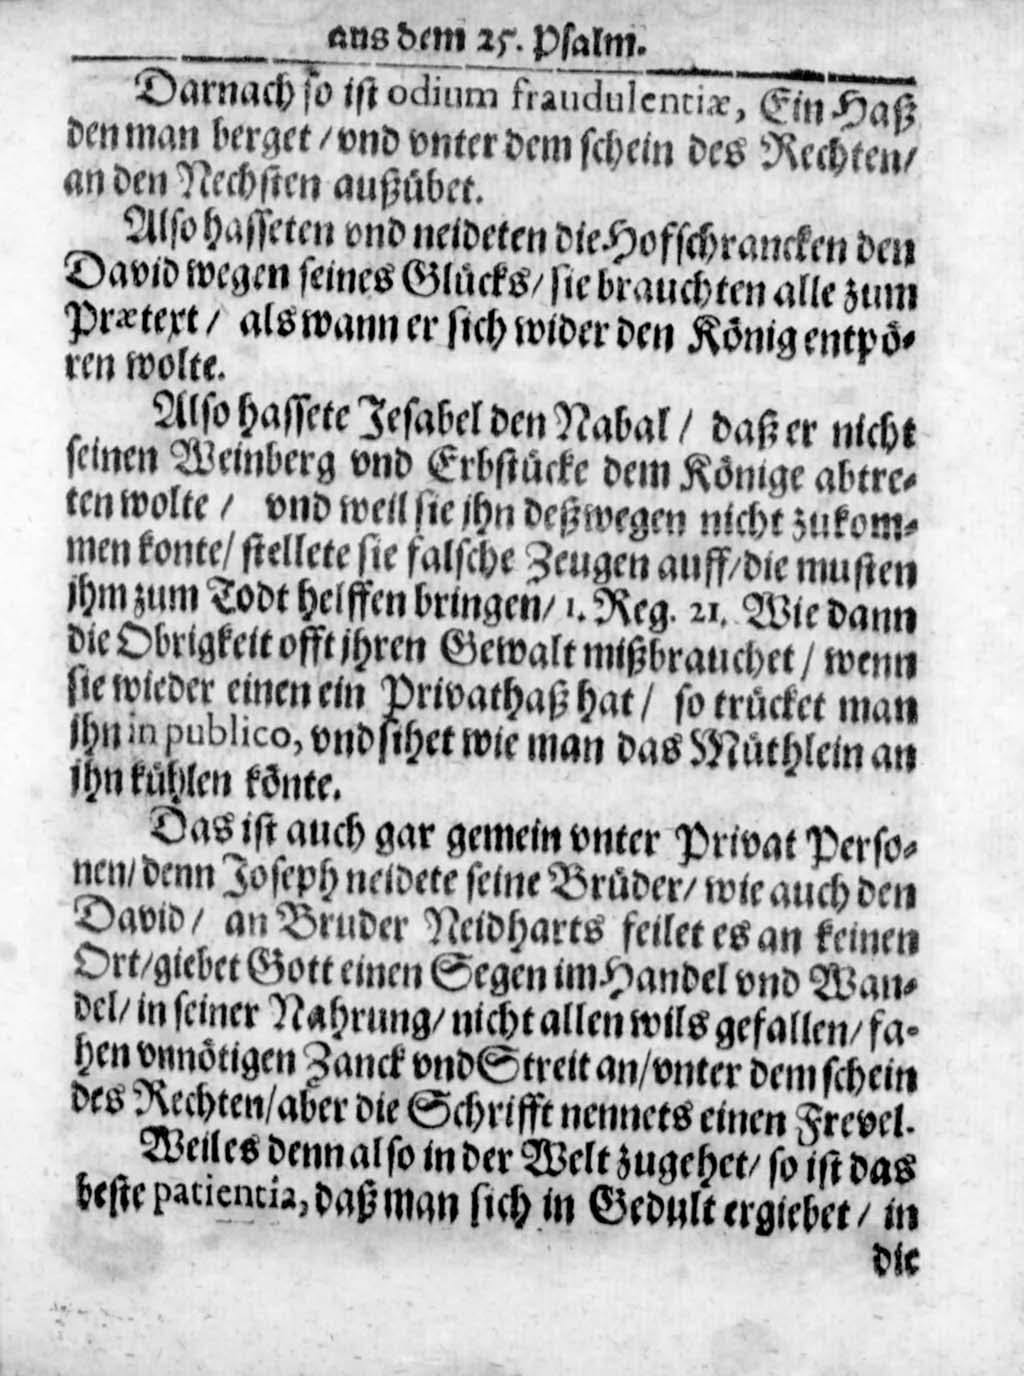 aus dem 25. Psalm.
Darnach so ist odium fraudulentiæ, Ein Haß
den man berget / vnd vnter dem schein des Rechten /
an den Nechsten außübet.
Also hasseten vnd neideten die Hofschrancken den
David wegen seines Glücks / sie brauchten alle zum
Prætext / als wann er sich wider den König entpö-
ren wolte.
Also hassete Jesabel den Nabal / daß er nicht
seinen Weinberg vnd Erbstücke dem Könige abtre-
ten wolte / vnd weil sie jhn deßwegen nicht zukom-
men konte / stellete sie falsche Zeugen auff / die musten
jhm zum Todt helffen bringen / 1. Reg. 21. Wie dann
die Obrigkeit offt jhren Gewalt mißbrauchet / wenn
sie wieder einen ein Privathaß hat / so trücket man
jhn in publico, vnd sihet wie man das Müthlein an
jhn kühlen könte.
Das ist auch gar gemein vnter Privat Perso-
nen / denn Joseph neidete seine Brüder / wie auch den
David / an Bruder Neidharts feilet es an keinen
Ort / giebet Gott einen Segen im Handel vnd Wan-
del / in seiner Nahrung / nicht allen wils gefallen / fa-
hen vnnötigen Zanck vnd Streit an / vnter dem schein
des Rechten / aber die Schrifft nennets einen Frevel.
Weil es denn also in der Welt zugehet / so ist das
beste patientia, daß man sich in Gedult ergiebet / in
die